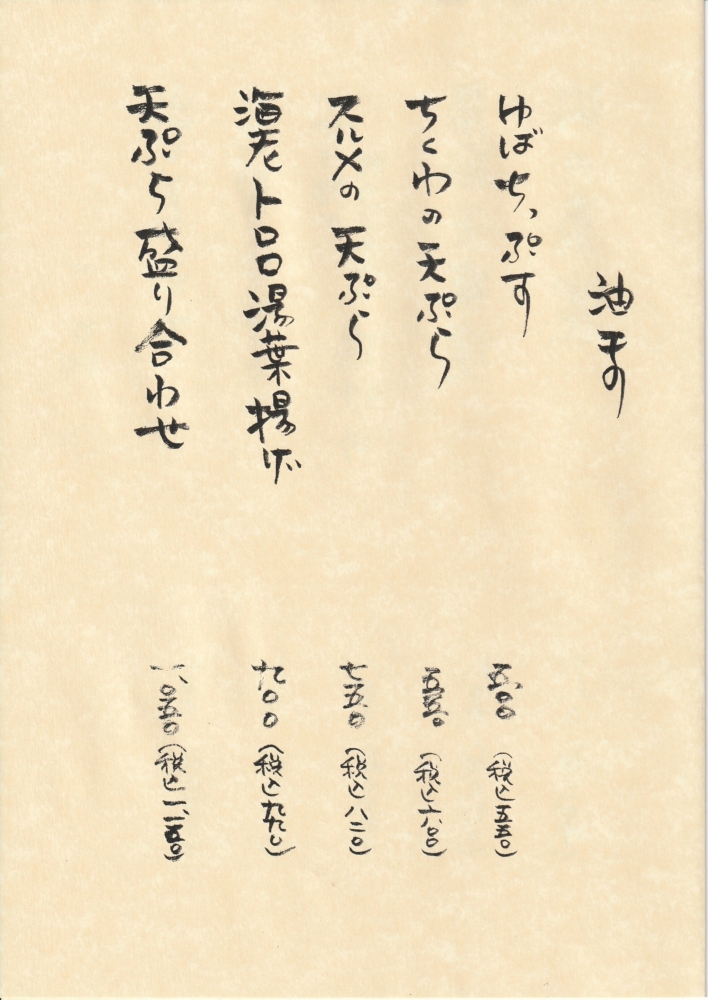 油もの
ゆばちっぷす 五〇〇 (税込五五〇)
ちくわの天ぷら 五五〇 (税込六〇〇)
スルメの天ぷら 七五〇 (税込八二〇)
海老トロロ湯葉揚げ 九〇〇 (税込九九〇)
天ぷら盛り合わせ 一、〇五〇 (税込一、一五〇)